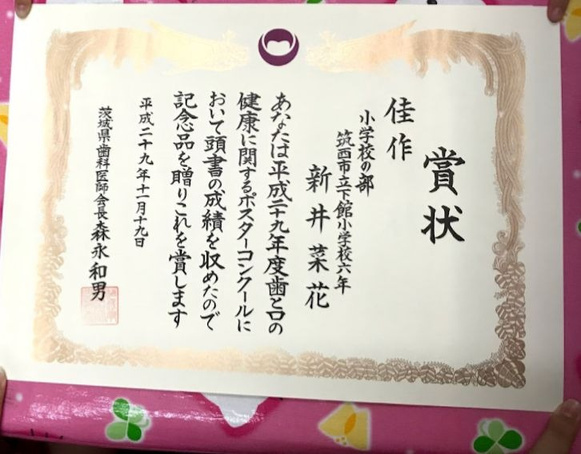 賞状
佳作
小学校の部
筑西市立下館小学校六年
新井菜花
あなたは平成二十九年度歯と口の
健康に関するポスターコンクールに
おいて頭書の成績を収めたので
記念品を贈りこれを賞します
平成二十九年十一月十九日
茨城県歯科医師会長森永和男